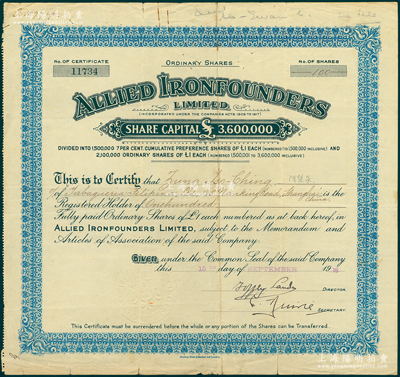 No. OF CERTIFICATE
11734
ORDINARY SHARES
No. OF SHARES
100
ALLIED IRONFOUNDERS
LIMITED.
(INCORPORATED UNDER THE COMPANIES ACTS 1908 TO 1917)
SHARE CAPITAL £ 3,600,000.
DIVIDED INTO 1,500,000 7 PER CENT. CUMULATIVE PREFERENCE SHARES OF £1 EACH (NUMBERED 1 TO 1,500,000 INCLUSIVE) AND
2,100,000 ORDINARY SHARES OF £1 EACH (NUMBERED 1,500,001 TO 3,600,000 INCLUSIVE).
This is to Certify that
of Shanghai is the
Registered Holder of One hundred
Fully paid Ordinary Shares of £1 each numbered as at back hereof, in
ALLIED IRONFOUNDERS LIMITED, subject to the Memorandum and
Articles of Association of the said Company.
Given under the Common Seal of the said Company
this day of SEPTEMBER 19
DIRECTOR.
SECRETARY.
This Certificate must be surrendered before the whole or any portion of the Shares can be Transferred.